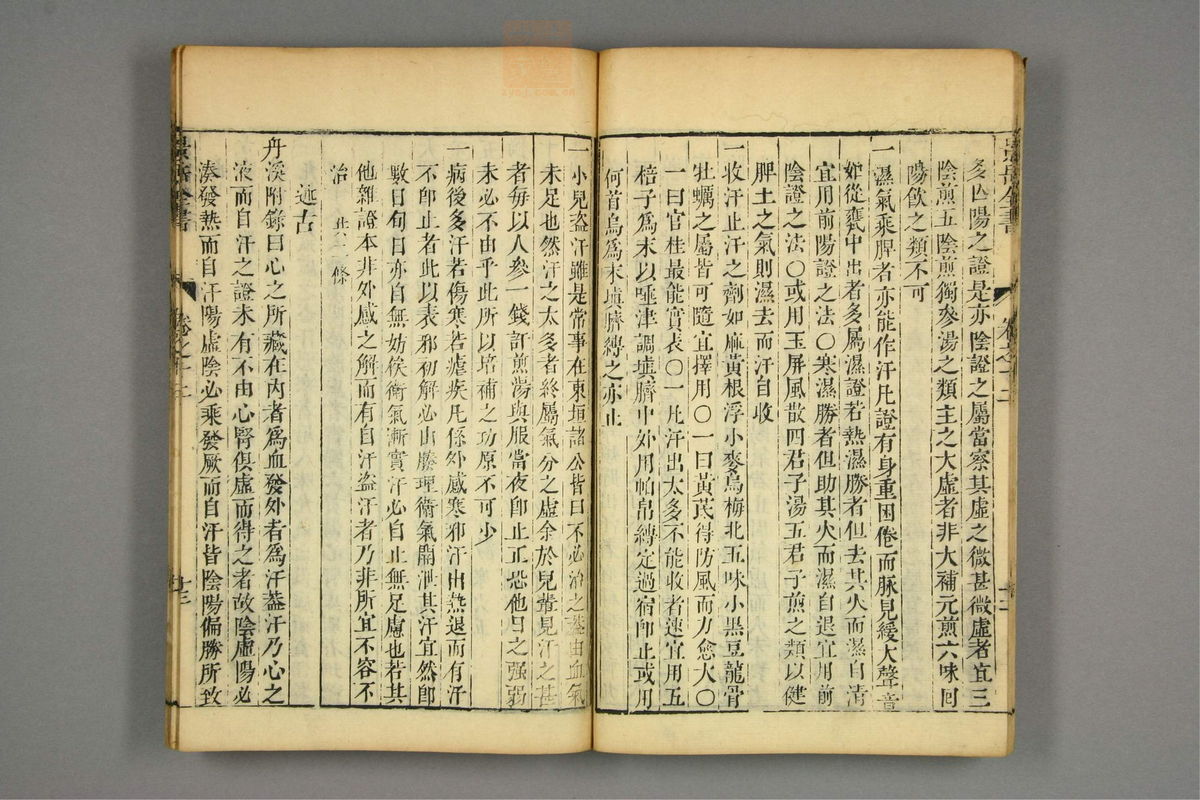 景岳全書
卷之十二
多凶陽之證是亦陰證之屬當察其虛之微甚微虛者宜三
陰煎五陰煎獨參湯之類主之大虛者非大補元煎六味回
陽飲之類不可
一濕氣乘脾者亦能作汗凡證有身重困倦而脈見緩大聲音
如從甕中出者多屬濕證若熱濕勝者但去其火而濕自清
宜用前陽證之法〇寒濕勝者但助其火而濕自退宜用前
陰證之法〇或用玉屏風散四君子湯五君子煎之類以健
脾土之氣則濕去而汗自收
一收汗止汗之劑如麻黃根浮小麥烏梅北五味小黑豆龍骨
牡蠣之屬皆可隨宜擇用〇一曰黃芪得防風而力愈大〇
一曰官桂最能實表〇一凡汗出太多不能收者速宜用五
棓子爲末以唾津調塡臍中外用帕帛縛定過宿卽止或用
何首烏爲末塡臍縛之亦止
一小兒盜汗雖是常事在東垣諸公皆曰不必治之蓋由血氣
未足也然汗之太多者終屬氣分之虛余於兒輩見汗之甚
者每以人參一錢許煎湯與服當夜卽止正恐他日之强弱
未必不由乎此所以培補之功原不可少
一病後多汗若傷寒若瘧疾凡係外感寒邪汗出熱退而有汗
不卽止者此以表邪初解必由腠理衞氣開泄其汗宜然卽
數日旬日亦自無妨俟衞氣漸實汗必自止無足慮也若其
他雜證本非外感之解而有自汗盜汗者乃非所宜不容不
治 共六條
述古
丹溪附錄曰心之所藏在內者爲血發外者爲汗蓋汗乃心之
液而自汗之證未有不由心腎俱虛而得之者故陰虛陽必
湊發熱而自汗陽虛陰必乘發厥而自汗皆陰陽偏勝所致
景岳全書
卷之十二
十三